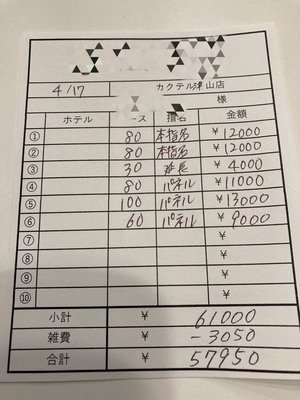 4/17 カクテル津山店
様
ホテル ース 指名 金額
① 80 本指名 ¥12000
② 80 本指名 ¥12000
③ 30 延長 ¥4000
④ 80 パネル ¥11000
⑤ 100 パネル ¥13000
⑥ 60 パネル ¥9000
⑦ ¥
⑧ ¥
⑨ ¥
⑩ ¥
小計 ¥ 61000
雑費 ¥ -3050
合計 ¥ 57950